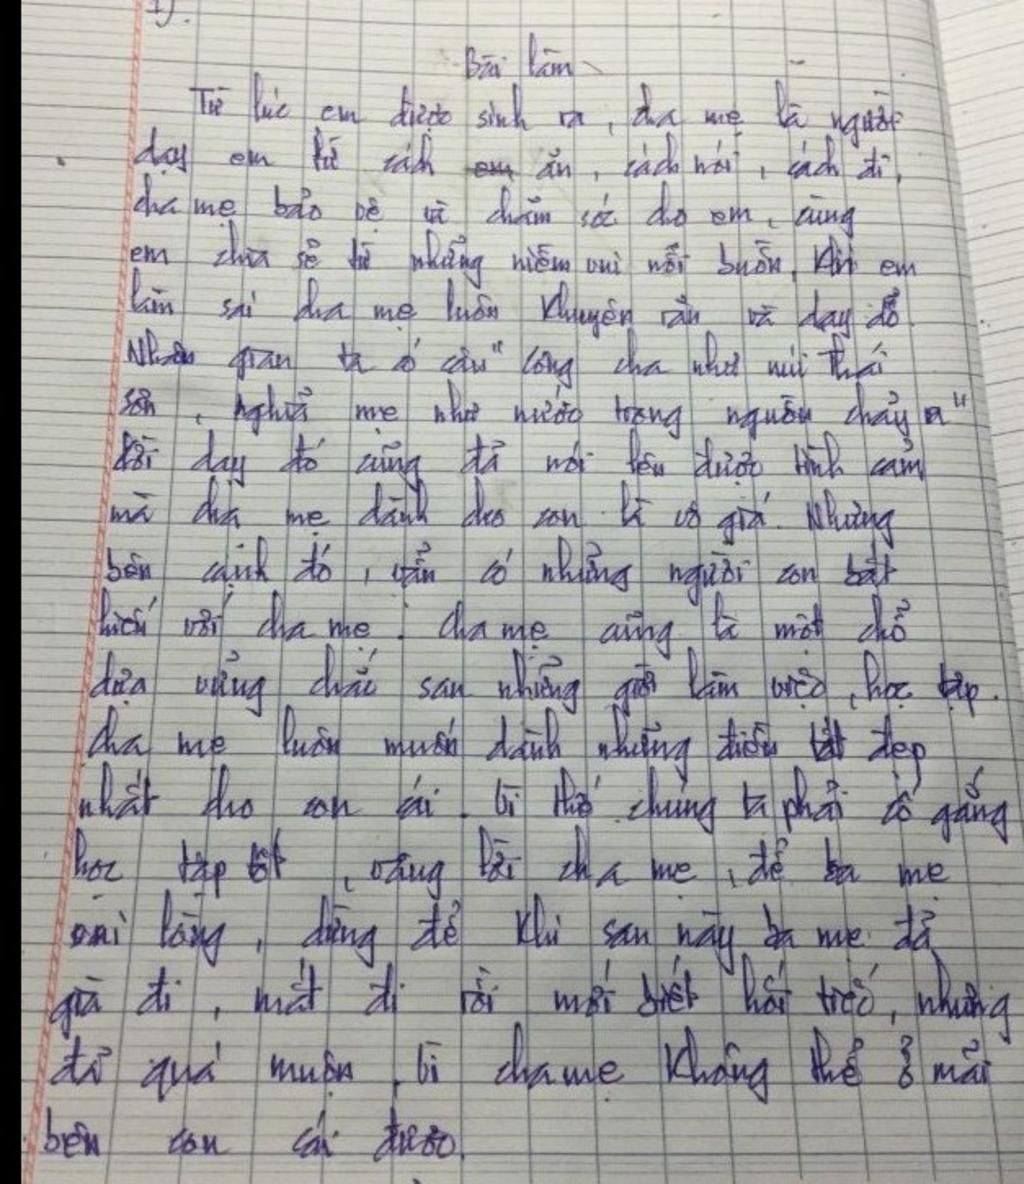 1).
Bài làm
Từ lúc em được sinh ra, cha mẹ là người
dạy em từ cách ăn, cách nói, cách đi,
cha mẹ bảo vệ và chăm sóc cho em, cùng
em chia sẽ từ những niềm vui nỗi buồn, khi em
làm sai cha mẹ luôn khuyên răn và dạy dỗ.
Nhân gian ta có câu "công cha như núi thái
sơn, nghĩa mẹ như nước trong nguồn chảy ra"
lời dạy đó cũng đã nói lên được tình cảm
mà cha mẹ dành cho con là vô giá. Nhưng
bên cạnh đó, vẫn có những người con bất
hiếu với cha mẹ. cha mẹ cũng là một chỗ
dựa vững chắc sau những giờ làm việc, học tập.
cha mẹ luôn muốn dành những điều tốt đẹp
nhất cho con cái. Vì thế chúng ta phải cố gắng
học tập tốt, vâng lời cha mẹ, để ba mẹ
vui lòng, đừng để khi sau này ba mẹ đã
già đi, mất đi rồi mới biết hối tiếc, nhưng
đã quá muộn, vì cha mẹ không thể ở mãi
bên con cái được.